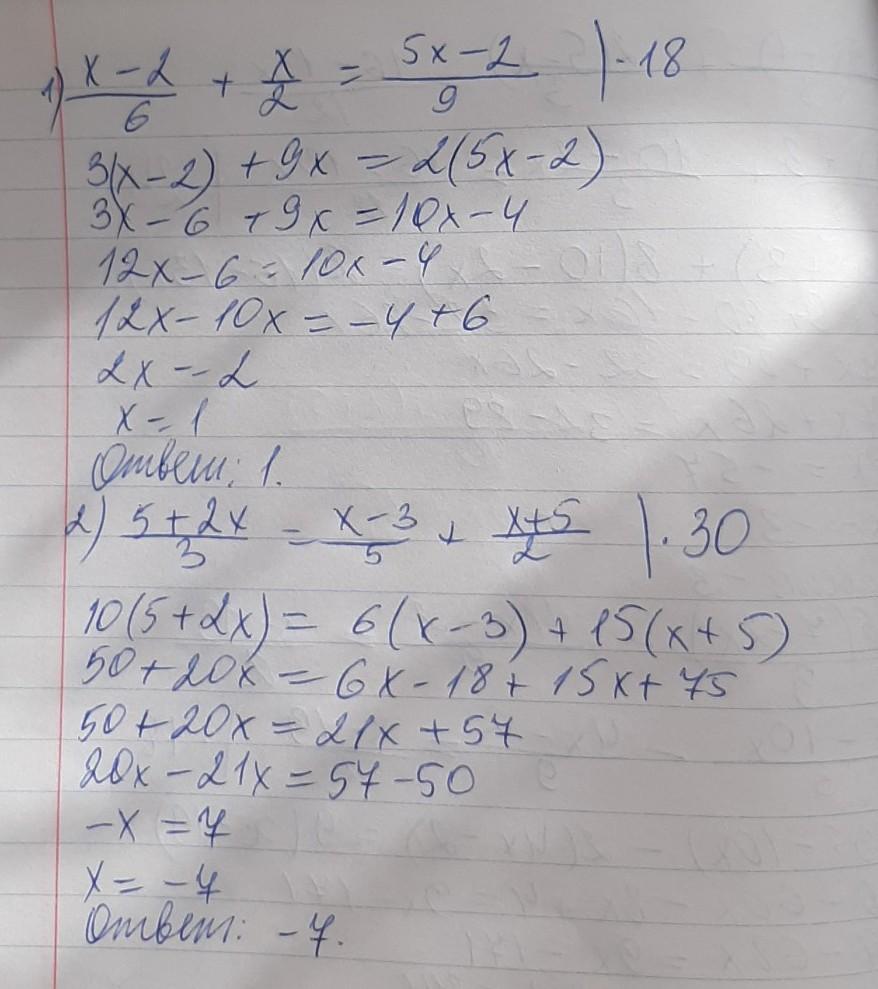 1) (x-2)/6 + x/2 = (5x-2)/9 | ·18
3(x-2) + 9x = 2(5x-2)
3x-6 + 9x = 10x-4
12x-6 = 10x-4
12x-10x = -4+6
2x = 2
x = 1
Ответ: 1.
2) (5+2x)/3 = (x-3)/5 + (x+5)/2 | ·30
10(5+2x) = 6(x-3) + 15(x+5)
50+20x = 6x-18+15x+75
50+20x = 21x+57
20x-21x = 57-50
-x = 7
x = -7
Ответ: -7.